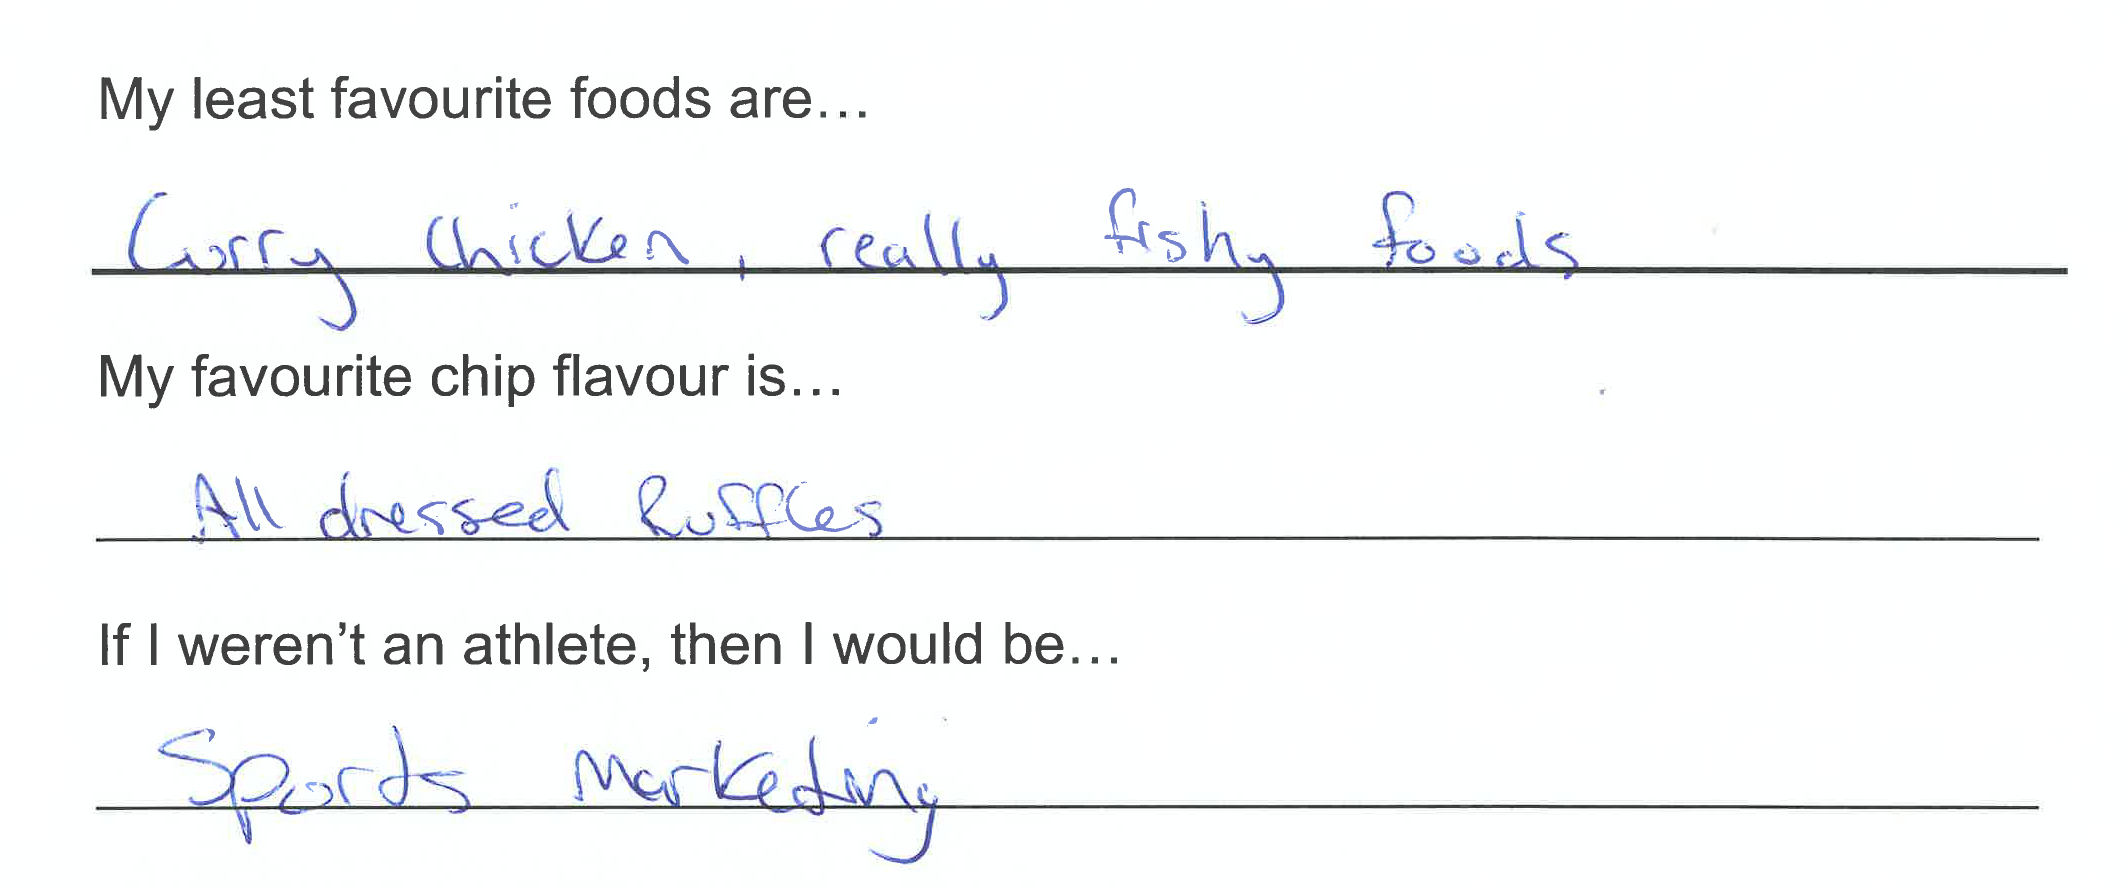 My least favourite foods are…
Curry Chicken, really fishy foods
My favourite chip flavour is…
All dressed Ruffles
If I weren’t an athlete, then I would be…
Sports Marketing